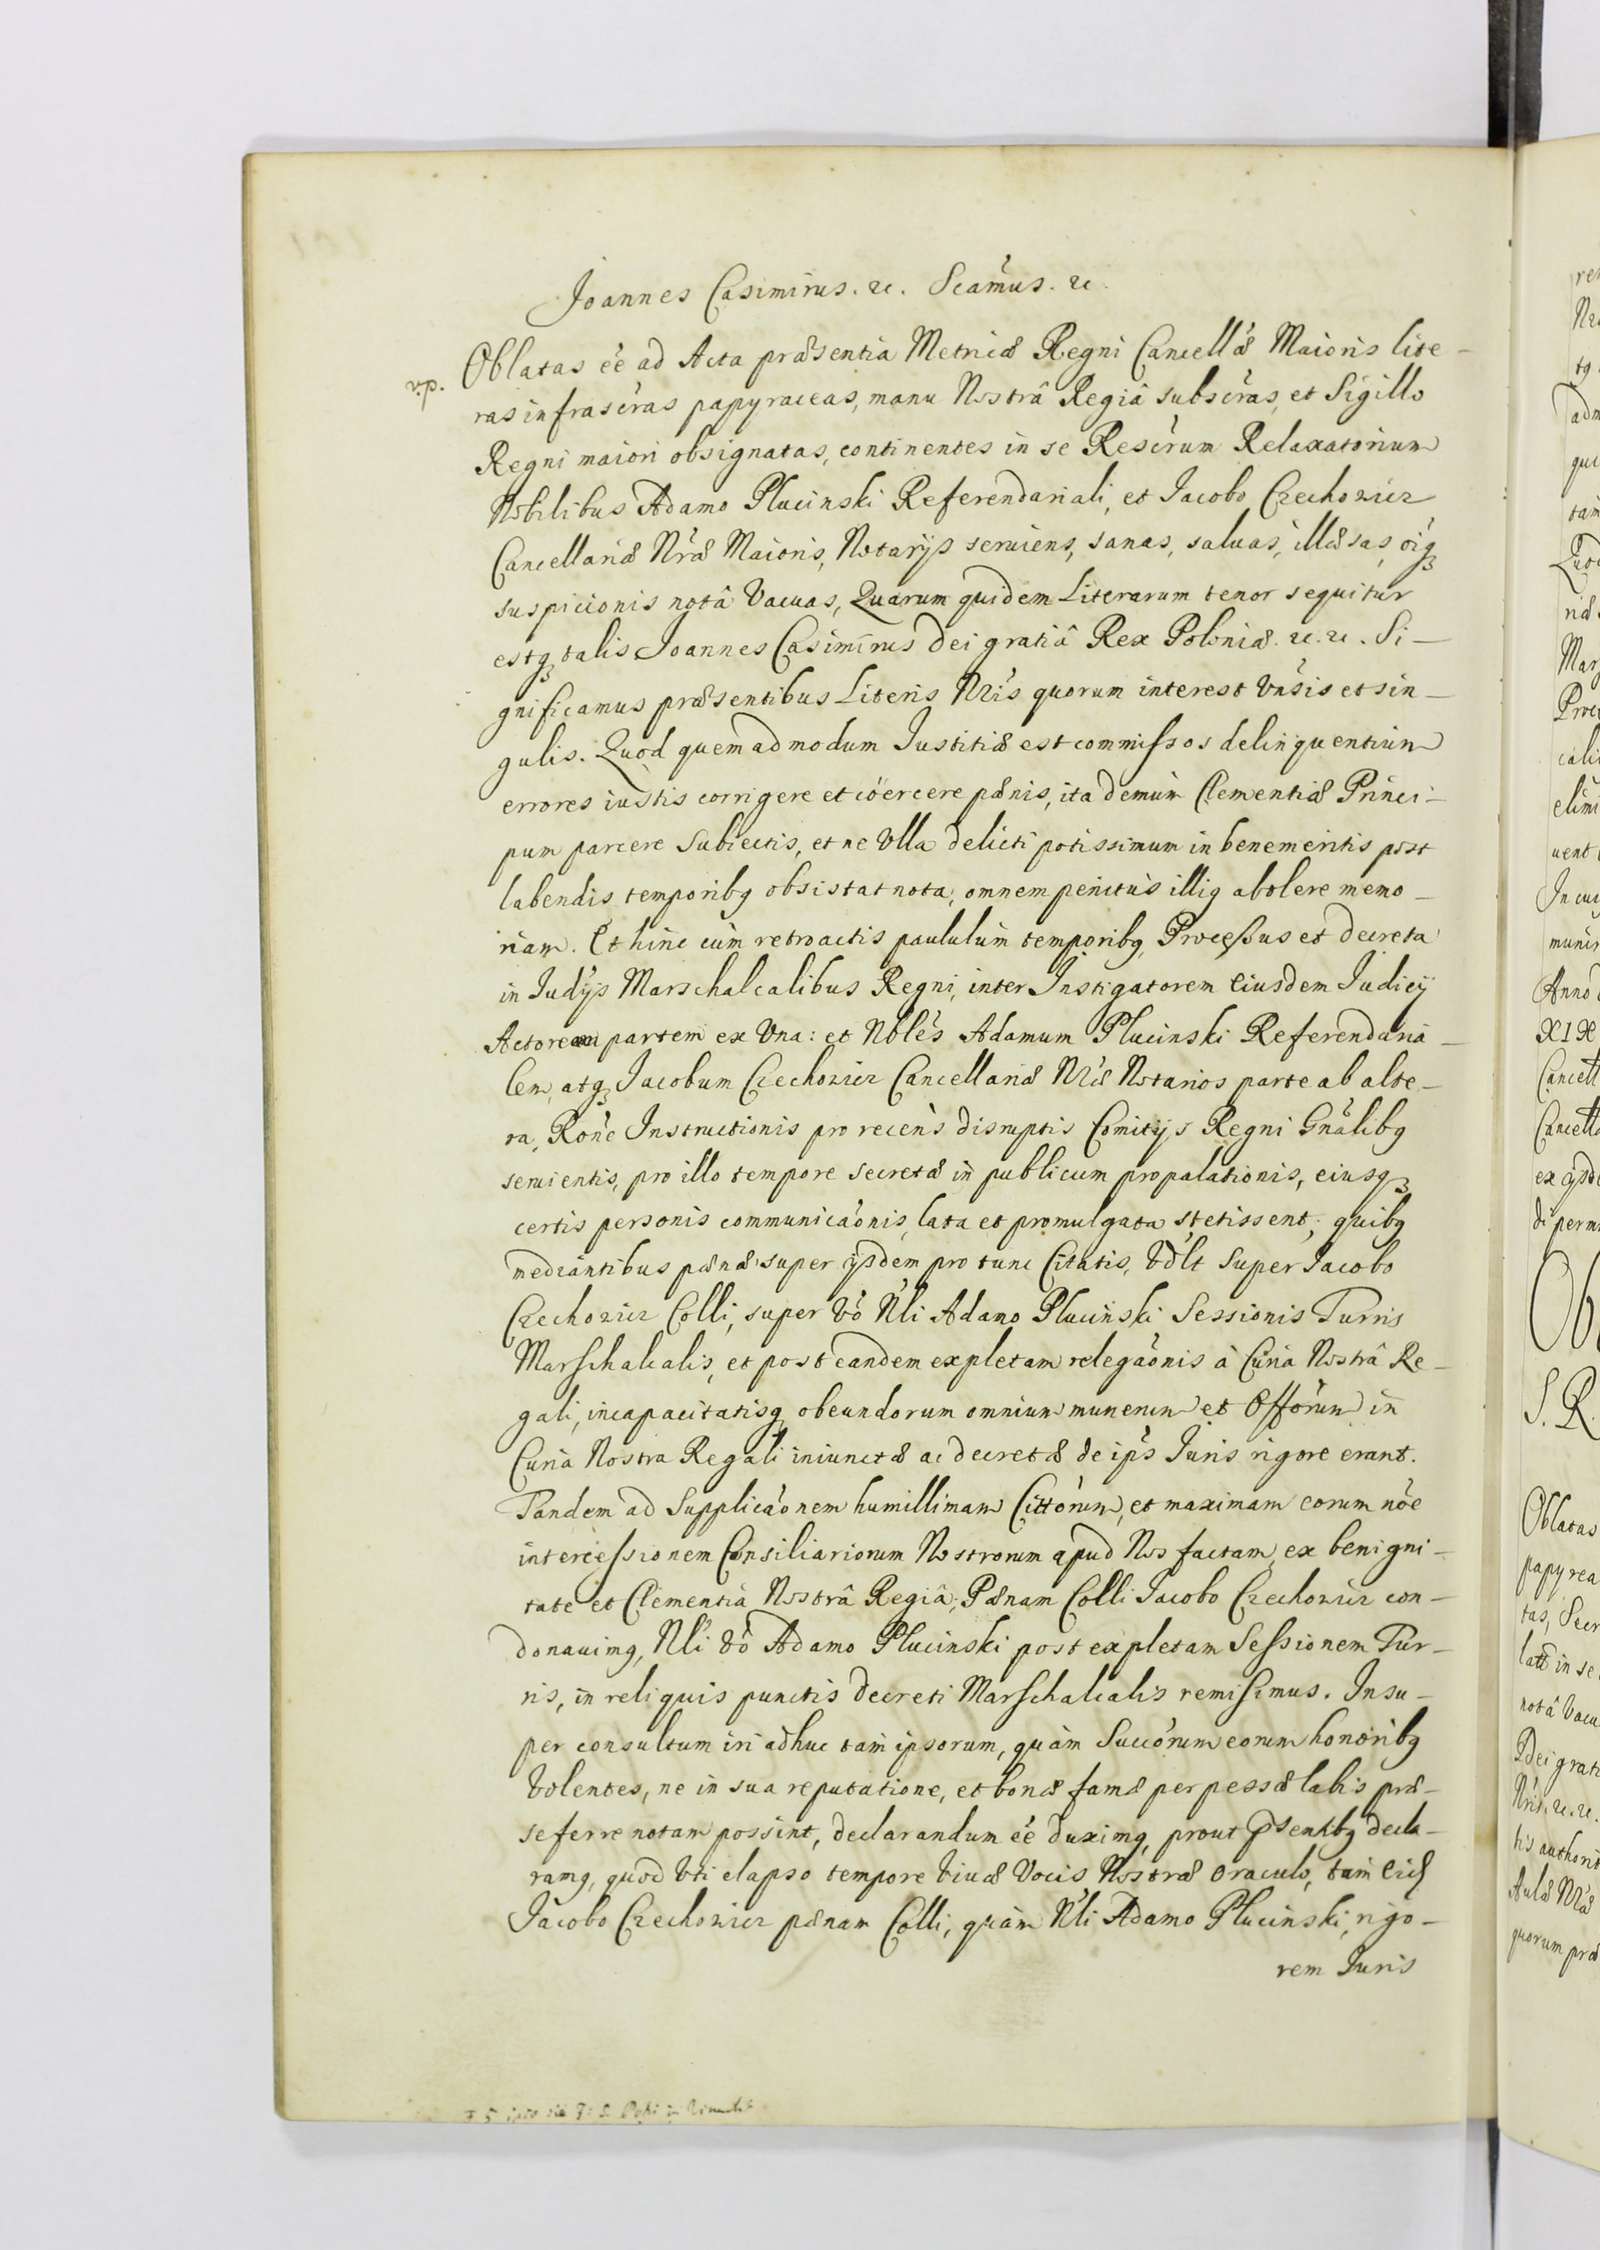 Joannes Casimirus. &c. Scãmus. &c.
v.p. Oblatas ée ad Acta præsentia Metricæ Regni Cancellæ Maioris lite-
ras infrascr̃as papyraceas, manu Nostrâ Regiâ subscr̃as, et Sigillo
Regni maiori obsignatas, continentes in se Rescr̃um Relaxatorium
Nobilibus Adamo Plucinski Referendariali, et Jacobo Czechowicz
Cancellariæ Nr̃æ Maioris, Notarijs seruiens, sanas, saluas, illæsas, oĩq
suspicionis notâ Vacuas, Quarum quidem Literarum tenor sequitur
estq talis Joannes Casimirus Dei gratiâ Rex Poloniæ. &c. &c. Si-
gnificamus præsentibus Literis Nr̃is quorum interest Vnĩsis et sin-
gulis. Quod quemadmodum Justitiæ est commissos delinquentium
errores iustis corrigere et cöercere pænis, ita demùm Clementiæ Princi-
pum parcere Subiectis, et ne Vlla delicti potissimum in benemeritis post
labendis temporibq obsistat nota, omnem penitùs illiq abolere memo-
riam. Et hinc cùm retroactis paululùm temporibq Processus et decreta
in Judijs Marschalcalibus Regni, inter Instigatorem Eiusdem Judicij
Actorem partem ex Vna: et Nobl̃es Adamum Plucinski Referendaria-
lem, atq Jacobum Czechowicz Cancellariæ Nr̃æ Notarios parte ab alte-
ra, Rõne Instructionis pro recens disruptis Comitijs Regni Gnãlibq
seruientis, pro illo tempore secretæ in publicum propalationis, eiusq
certis personis communicãonis, lata et promulgata stetissent, quibq
mediantibus pænæ super ijsdem pro tunc Citatis, Vdlt super Jacobo
Czechowicz Colli, super Vò Nl̃i Adamo Plucinski Sessionis Turris
Marschalcalis, et post eandem expletam relegãonis à Curia Nostrâ Re-
gali, incapacitatisq obeundorum omnium munerum et Offõrum in
Curia Nostra Regali iniunctæ ac decretæ de ipš Juris rigore erant.
Tandem ad Supplicãonem humillimam Cittõrum, et maximam eorum nõe
intercessionem Consiliariorum Nostrorum apud Nos factam, ex benigni-
tate et Clementiâ Nostrâ Regiâ, Pænam Colli Jacobo Czechowicz con-
donauimq, Nl̃i Vò Adamo Plucinski post expletam Sessionem Tur-
ris, in reliquis punctis decreti Marschalcalis remisimus. Insu-
per consultum iri adhuc tam ipsorum, quàm Succõrum eorum honoribq
Volentes, ne in sua reputatione, et bonæ famæ perpessæ labis præ-
seferre notam possint, declarandum ée duximq, prout p̃sentibq decla-
ramq, quod Vti elapso tempore Viuæ Vocis Nostræ oraculo, tam Eid
Jacobo Czechowicz pænam Colli, quàm Nl̃i Adamo Plucinski, rigo-
rem Juris